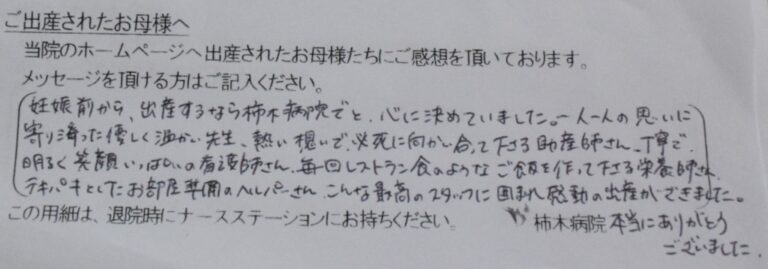 ご出産されたお母様へ
当院のホームページへ出産されたお母様たちにご感想を頂いております。
メッセージを頂ける方はご記入ください。
妊娠前から、出産するなら柿木病院でと、心に決めていました。一人一人の思いに
寄り添った優しく温かい先生、熱い想いで、必死に向かい合って下さる助産師さん、丁寧で
明るく笑顔いっぱいの看護師さん、毎回レストラン食のようなご飯を作って下さる栄養師さん
テキパキとしたお部屋準備のヘルパーさん、こんな最高のスタッフに囲まれ感動の出産ができました。
この用紙は、退院時にナースステーションにお持ちください。 柿木病院 本当にありがとう
ございました.